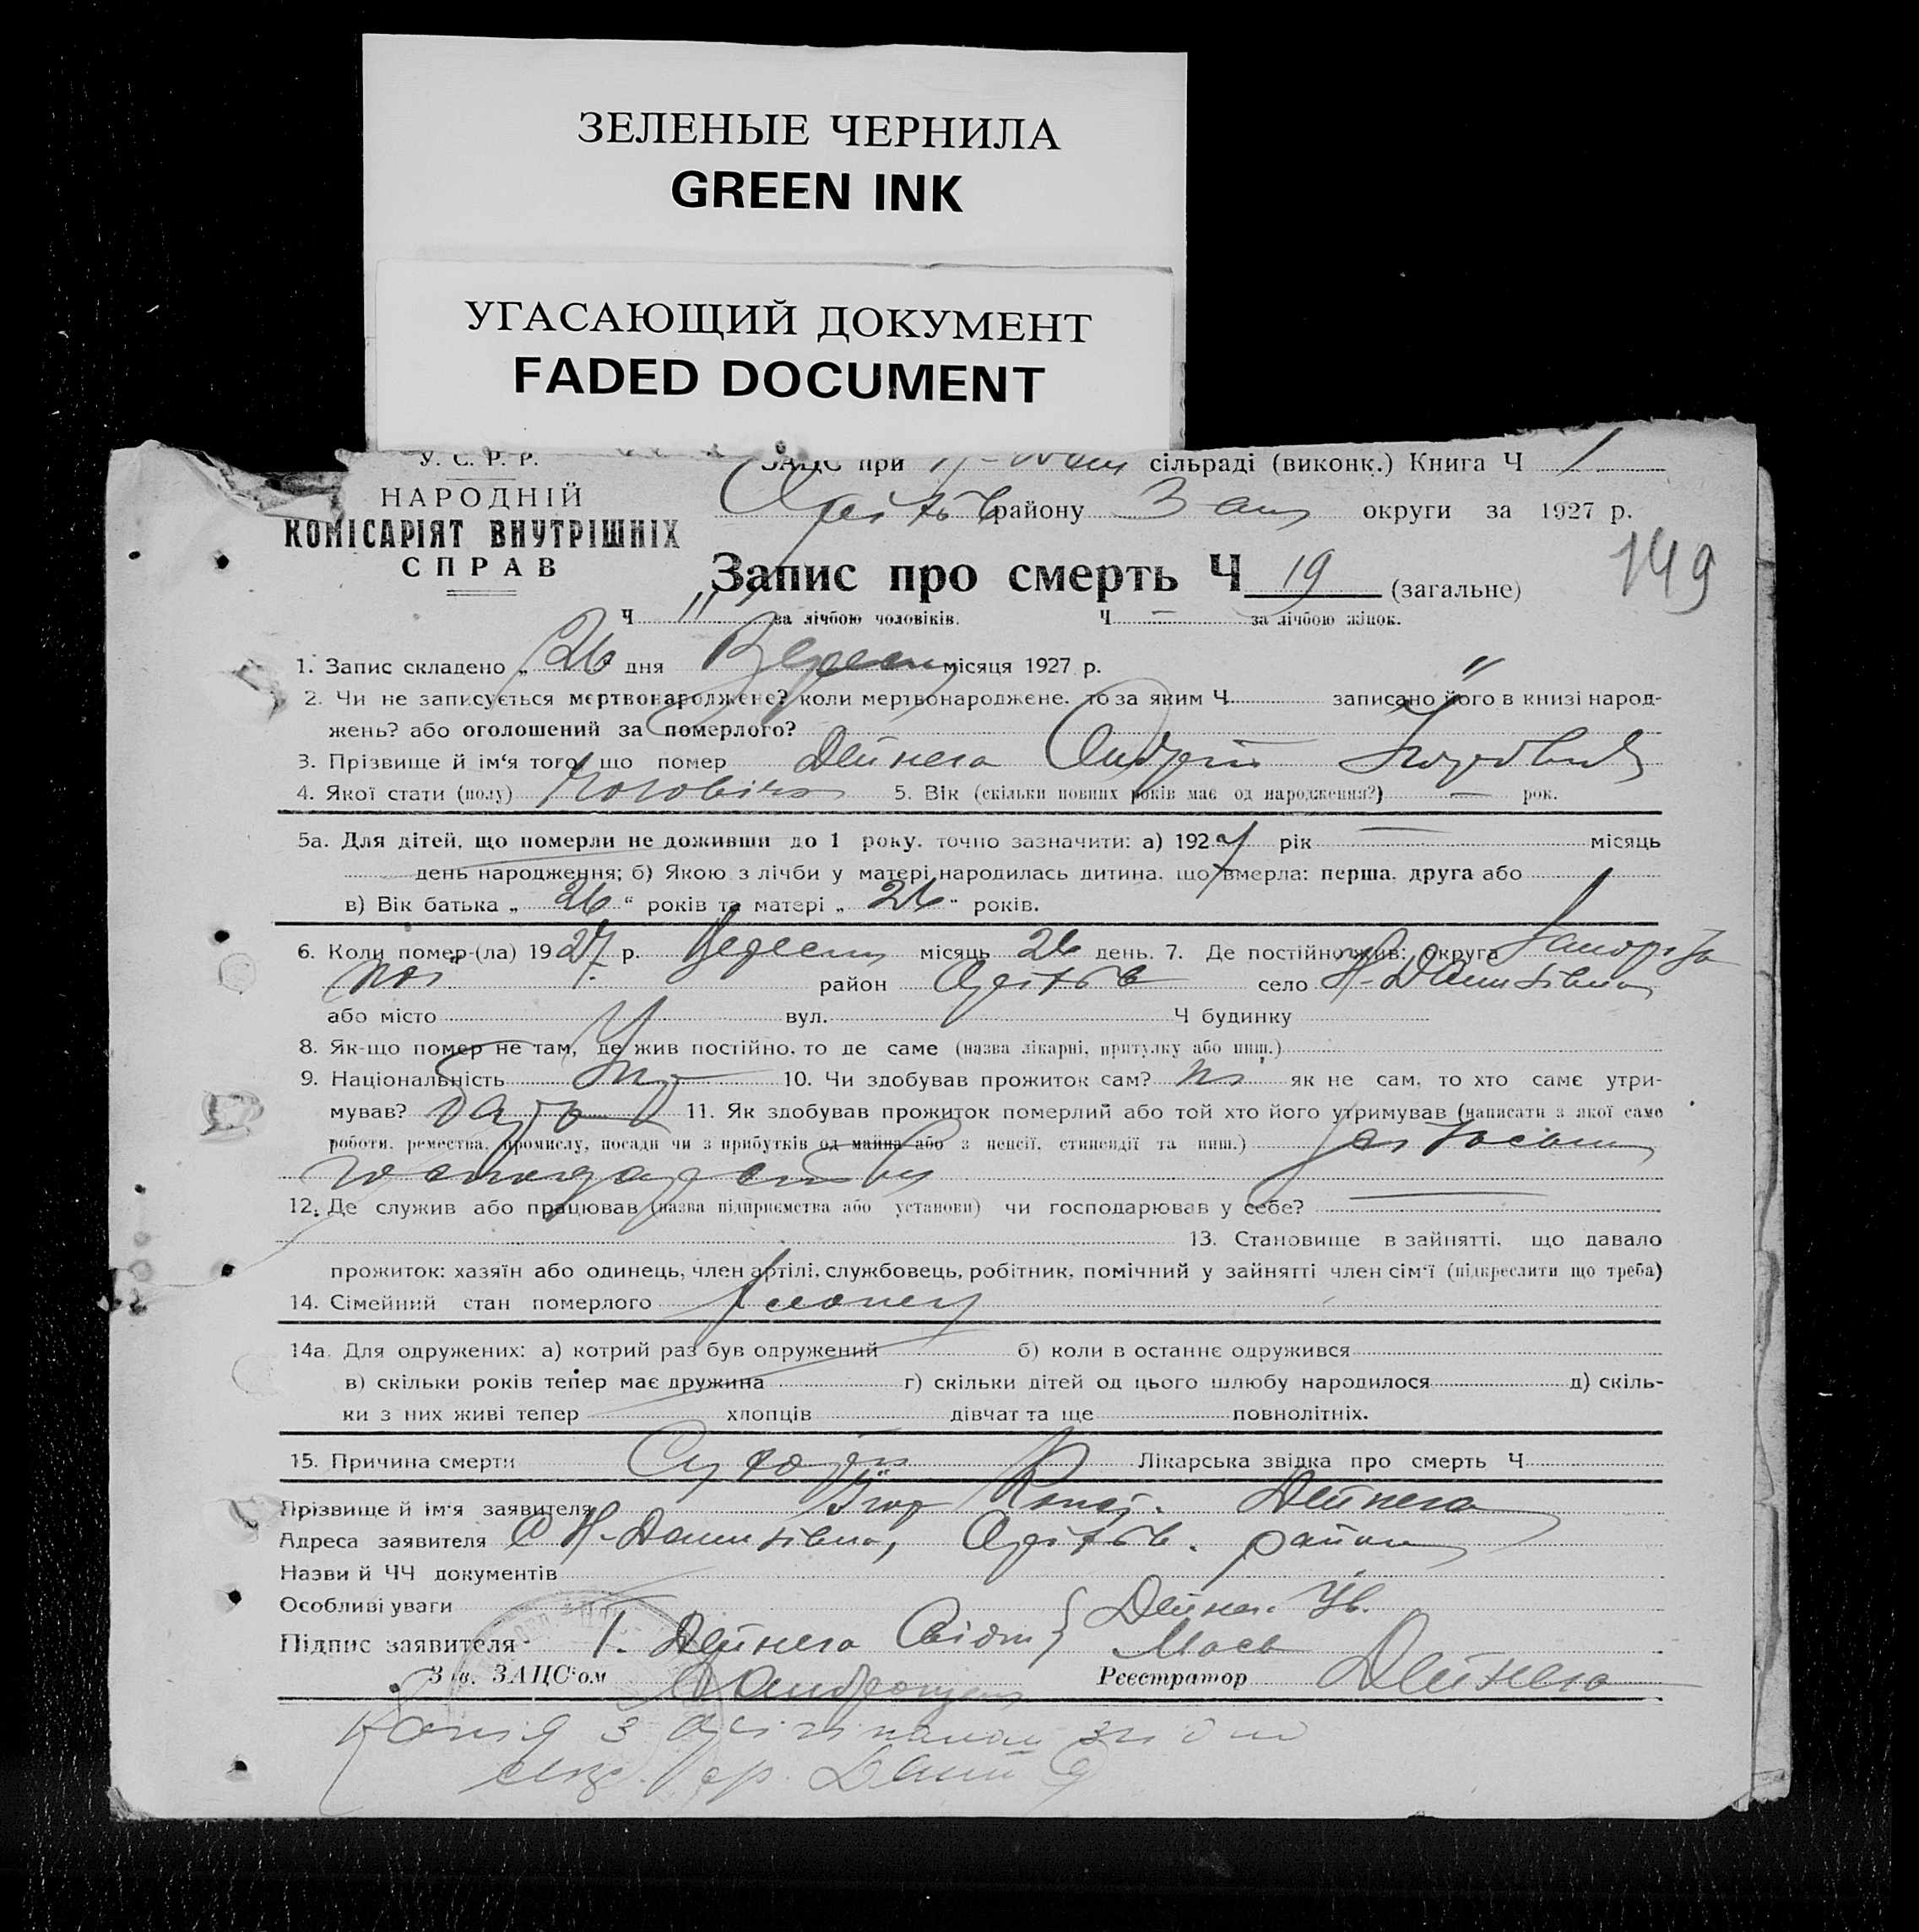 ЗЕЛЕНЫЕ ЧЕРНИЛА
GREEN INK
УГАСАЮЩИЙ ДОКУМЕНТ
FADED DOCUMENT
У. С. Р. Р.
НАРОДНІЙ
КОМІСАРІЯТ ВНУТРІШНІХ
СПРАВ
ЗАЦС при сільраді (виконк.) Книга Ч 1
району Зап округи за 1927 р.
149
Запис про смерть Ч 19 (загальне)
Ч 11 за лічбою чоловіків. Ч — за лічбою жінок.
1. Запис складено „ 26 дня Вересня місяця 1927 р.
2. Чи не записується мертвонароджене? коли мертвонароджене, то за яким Ч записано його в книзі народ-
жень? або оголошений за померлого?
3. Прізвище й ім'я того, що помер Дейнега Андрій
4. Якої стати (полу) Чоловіча 5. Вік (скільки повних років має од народження?) — рок.
5а. Для дітей, що померли не доживши до 1 року, точно зазначити: а) 1927 рік — місяць
день народження; б) Якою з лічби у матері народилась дитина, що вмерла: перша, друга або
в) Вік батька „ 26 “ років та матері „ 26 “ років.
6. Коли помер-(ла) 1927 р. Вересня місяць 26 день. 7. Де постійно жив: округа Запоріж
район Оріхів село Н-Данилівка
або місто вул. Ч будинку
8. Як-що помер не там, де жив постійно, то де саме (назва лікарні, притулку або инш.)
9. Національність Укр 10. Чи здобував прожиток сам? ні як не сам, то хто саме утри-
мував? 11. Як здобував прожиток померлий або той хто його утримував (написати з якої саме
роботи, ремества, промислу, посади чи з прибутків од майна або з пенсії, стипендії та инш.)
12. Де служив або працював (назва підприємства або установи) чи господарював у себе? —
13. Становище в зайнятті, що давало
прожиток: хазяїн або одинець, член артілі, службовець, робітник, помічний у зайнятті член сім'ї (підкреслити що треба)
14. Сімейний стан померлого
14а. Для одружених: а) котрий раз був одружений б) коли в останнє одружився
в) скільки років тепер має дружина г) скільки дітей од цього шлюбу народилося д) скіль-
ки з них живі тепер хлопців дівчат та ще повнолітніх.
15. Причина смерти Лікарська звідка про смерть Ч
Прізвище й ім'я заявителя Дейнега
Адреса заявителя С Н-Данилівка, Оріхів. району
Назви й ЧЧ документів
Особливі уваги
Підпис заявителя Дейнега
Зав. ЗАЦС'ом Реєстратор Дейнега